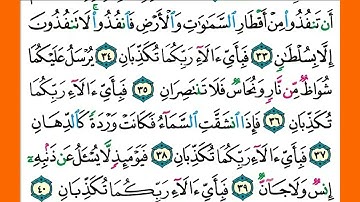 أَن تَنفُذُوا۟ مِنْ أَقْطَارِ ٱلسَّمَٰوَٰتِ وَٱلْأَرْضِ فَٱنفُذُوا۟ ۚ لَا تَنفُذُونَ
إِلَّا بِسُلْطَٰنٍ ٣٣ فَبِأَىِّ ءَالَآءِ رَبِّكُمَا تُكَذِّبَانِ ٣٤ يُرْسَلُ عَلَيْكُمَا
شُوَاظٌ مِّن نَّارٍ وَنُحَاسٌ فَلَا تَنتَصِرَانِ ٣٥ فَبِأَىِّ ءَالَآءِ رَبِّكُمَا
تُكَذِّبَانِ ٣٦ فَإِذَا ٱنشَقَّتِ ٱلسَّمَآءُ فَكَانَتْ وَرْدَةً كَٱلدِّهَانِ
٣٧ فَبِأَىِّ ءَالَآءِ رَبِّكُمَا تُكَذِّبَانِ ٣٨ فَيَوْمَئِذٍ لَّا يُسْـَٔلُ عَن ذَنۢبِهِۦٓ
إِنسٌ وَلَا جَآنٌّ ٣٩ فَبِأَىِّ ءَالَآءِ رَبِّكُمَا تُكَذِّبَانِ ٤٠